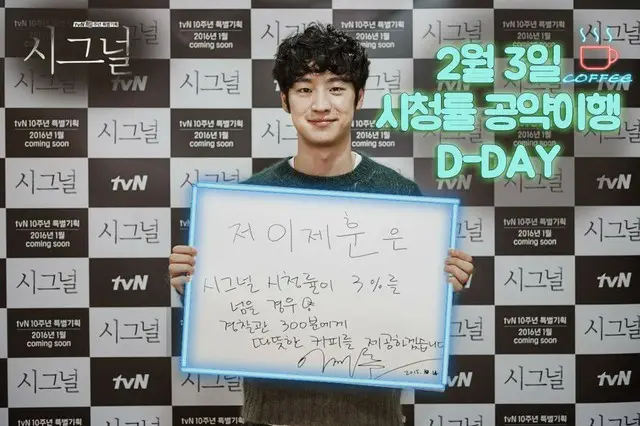 tvN 10주년 특별기획
시그널
2월 3일
COFFEE
시청률 공약이행
D-DAY
저 이제훈은
시그널 시청률이 3%를
넘을 경우
경찰관 300분에게
따뜻한 커피를 제공하겠습니다
2015.
tvN 10주년 특별기획
2016년 1월
coming soon
시그널
tvN